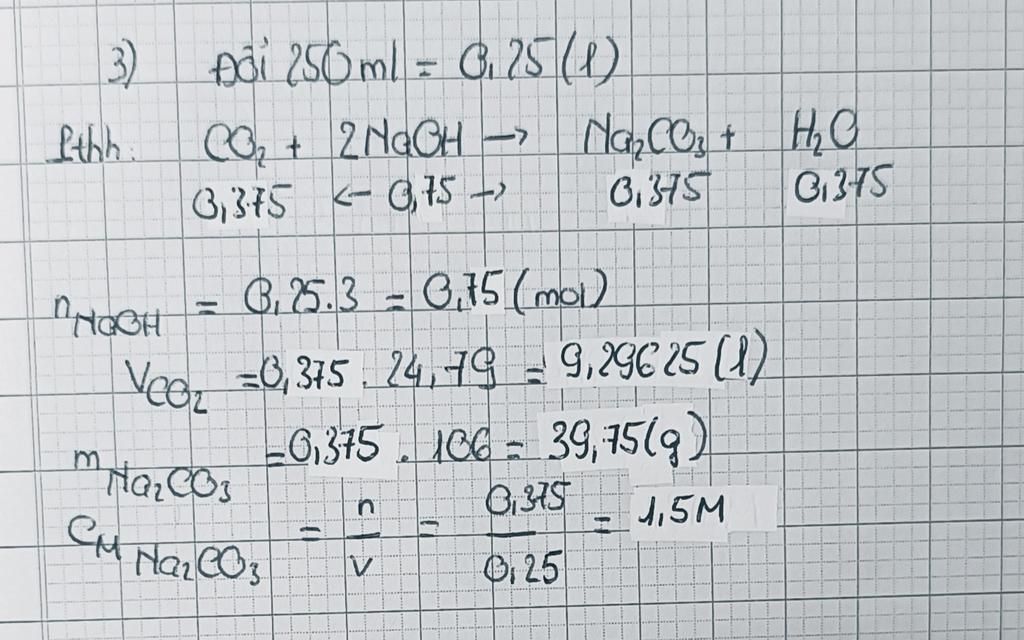 3) Đổi 250ml = 0,25 (l)
Pthh: CO₂ + 2NaOH → Na₂CO₃ + H₂O
0,375 ← 0,75 → 0,375 0,375
n NaOH = 0,25.3 = 0,75 (mol)
V CO₂ = 0,375 . 24,79 = 9,29625 (l)
m Na₂CO₃ = 0,375 . 106 = 39,75 (g)
C M Na₂CO₃ = n/V = 0,375/0,25 = 1,5M